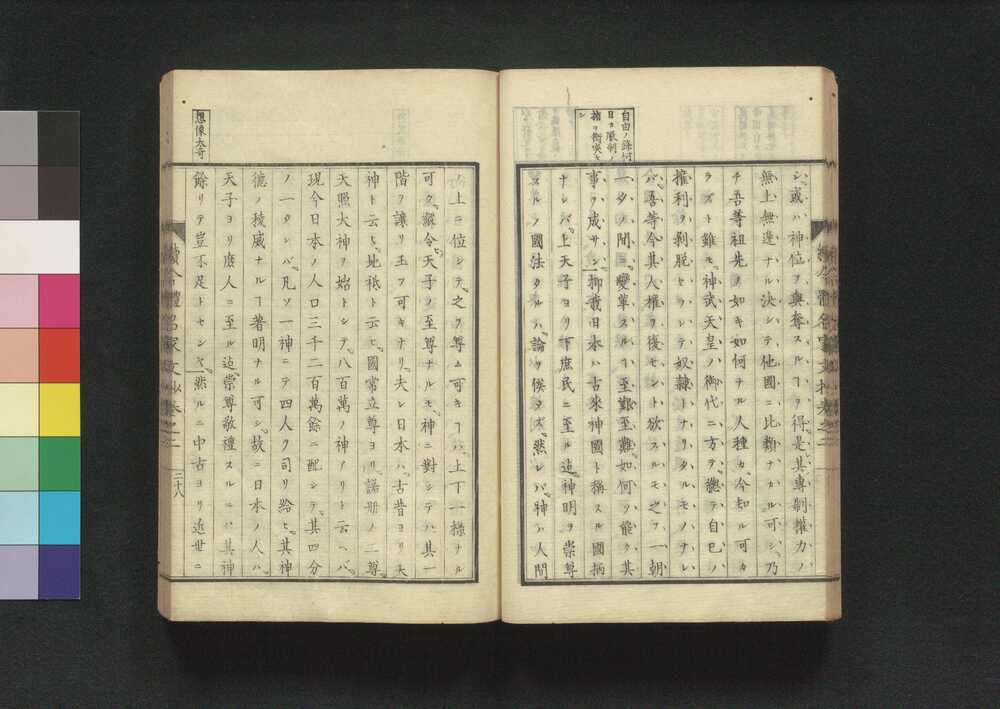 自由ノ鋒何
日カ厭制ノ
楯ヲ衝突セ
シ
シ、或ハ神位ヲ與奪スルヿヲ得、是其專制權力ノ
無上無邊ナル決シテ他國ニ比類ナカル可シ、乃
チ吾等祖先ノ如キ如何ナル人種カ、今知ル可カ
ラズト雖モ、神武天皇ノ御代ニ方ヲ、總テ自己ノ
權利ヲ剥脱セラレテ奴隷トナリタルモノハナレ
ハ、吾等今其人權ヲ復セント欲スルモ之ヲ一朝
一夕ノ間ニ變革スルハ至艱至難如何ゾ能ク其
事ヲ成サン、抑我日本ハ古來神國ト稱スル國柄
ナレバ、上天子ヨリ下庶民ニ至ル迄神明ヲ崇尊
スルノ國法タルハ論ヲ俟タズ、然レバ神ハ人間
ノ上ニ位シテ、之ヲ尊ム可キヿハ上下一様ナル
可ク、縱令ヒ天子ノ至尊ナルモ、神ニ對シテハ其一
階ヲ讓リ玉フ可キナリ、夫レ日本ハ古昔ヨリ天
神ト云ヒ、地祇ト云ヒ、國常立尊ヨリ諾冊ノ二尊
天照大神ヲ始トシテ、八百萬ノ神アリト云ヘバ、
現今日本ノ人口三千二百萬餘ニ配シテ、其四分
ノ一タレバ、凡ソ一神ニテ四人ヲ司リ給ヒ、其神
德ノ稜威ナルヿ著明ナル可シ、故ニ日本ノ人ハ
天子ヨリ庶人ニ至ル迄崇尊敬禮スルニハ其神
餘リテ豈不足トセンヤ、然ルニ中古ヨリ近世ニ
想像太奇
續今體名家文抄卷之二
二十八